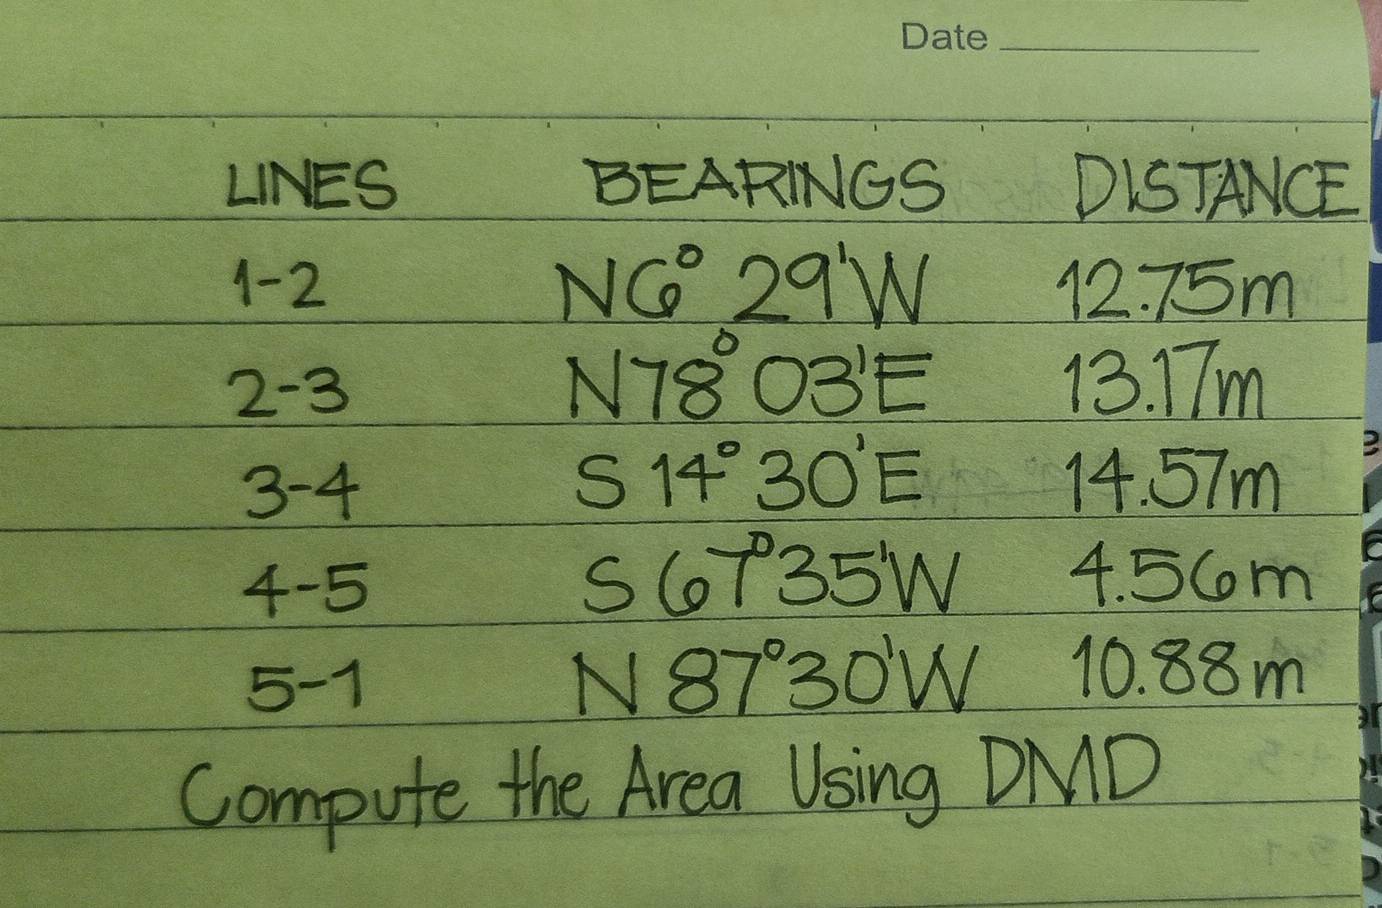 Date
LINES BEARINGS DISTANCE
1-2 N6° 29'W 12.75m
2-3 N78° 03'E 13.17m
3-4 S 14° 30'E 14.57m
4-5 S 67°35'W 4.56m
5-1 N 87°30'W 10.88m
Compute the Area Using DMD